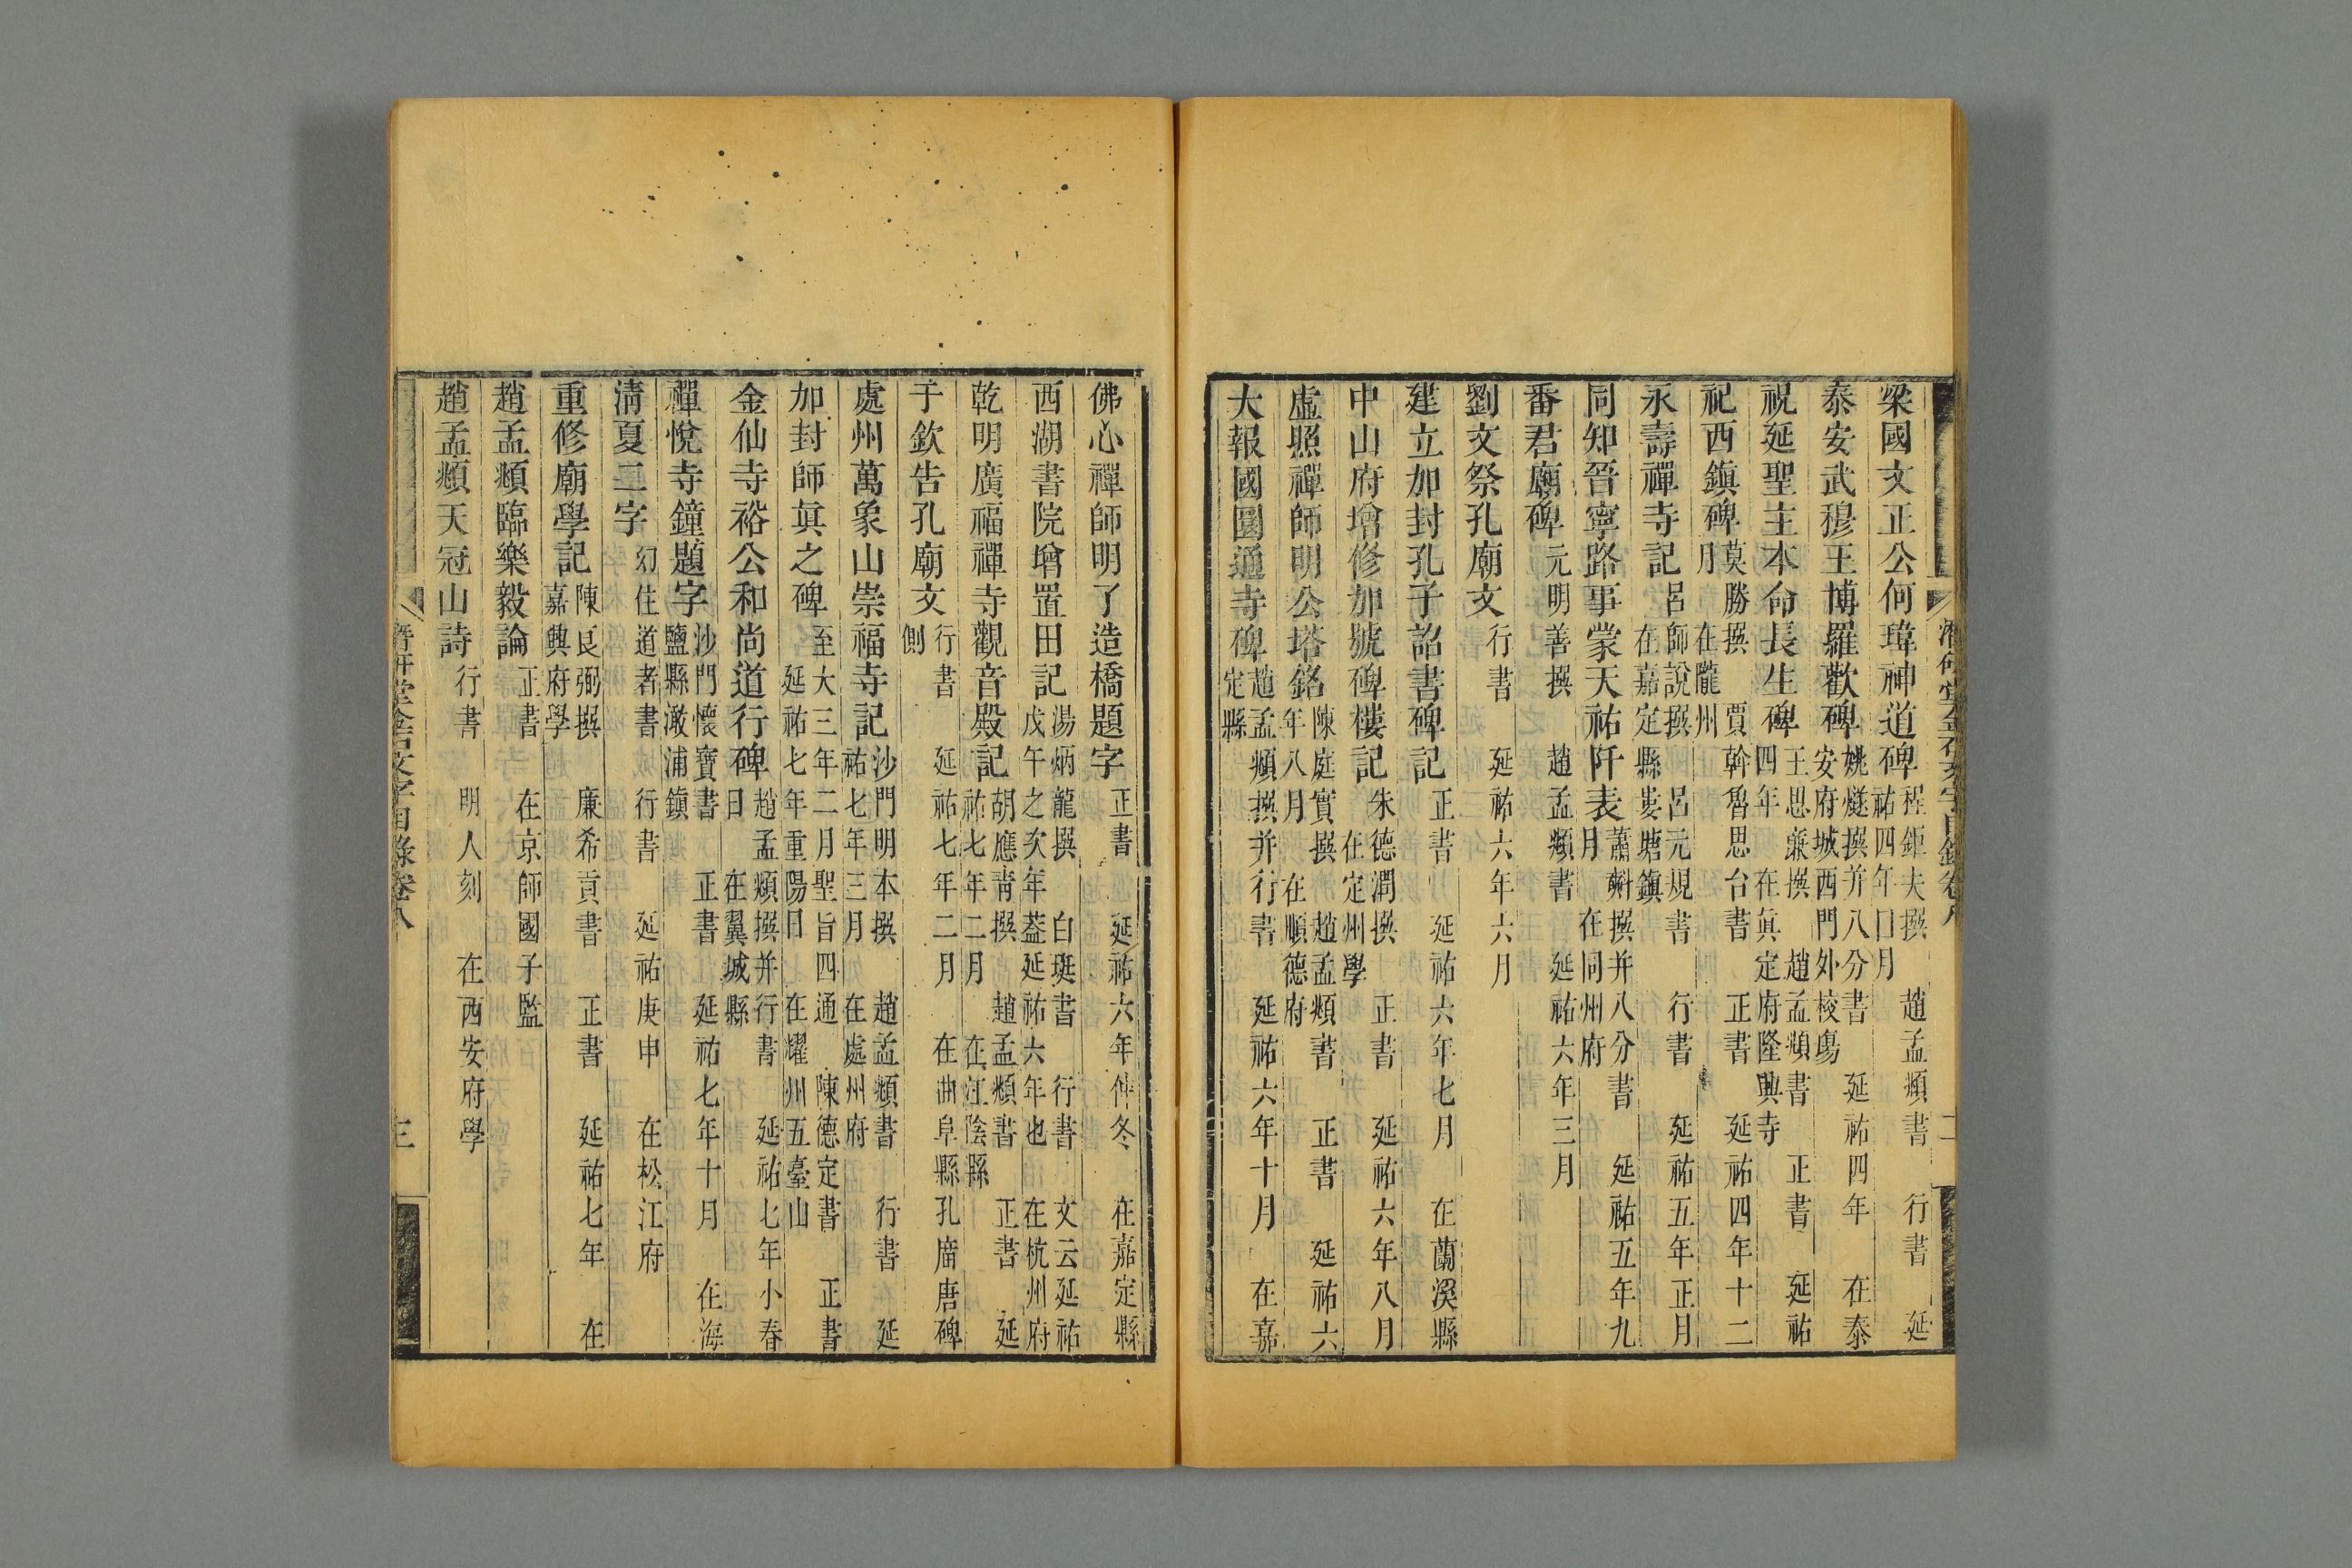 梁國文正公何瑋神道碑 程鉅夫撰 趙孟頫書 行書 延祐四年□月
泰安武穆王博羅歡碑 姚燧撰并八分書 延祐四年 在泰安府城西門外校場
祝延聖主本命長生碑 王思廉撰 趙孟頫書 正書 延祐四年 在真定府隆興寺
祀西鎮碑 莫勝撰 賈幹魯思台書 正書 延祐四年十二月 在隴州
永壽禪寺記 呂師說撰 呂元規書 行書 延祐五年正月 在嘉定縣婁塘鎮
同知晉寧路事蒙天祐阡表 蕭𣂏撰并八分書 延祐五年九月 在同州府
番君廟碑 元明善撰 趙孟頫書 延祐六年三月
劉文祭孔廟文 行書 延祐六年六月
建立加封孔子詔書碑記 正書 延祐六年七月 在蘭溪縣
中山府增修加號碑樓記 朱德潤撰 正書 延祐六年八月 在定州學
虛照禪師明公塔銘 陳庭實撰 趙孟頫書 正書 延祐六年八月 在順德府
大報國圓通寺碑 趙孟頫撰并行書 延祐六年十月 在嘉定縣
佛心禪師明了造橋題字 正書 延祐六年仲冬 在嘉定縣
西湖書院增置田記 湯炳龍撰 白珽書 行書 文云延祐戊午之次年葢延祐六年也 在杭州府
乾明廣福禪寺觀音殿記 胡應青撰 趙孟頫書 正書 延祐七年二月 在江陰縣
于欽告孔廟文 行書 延祐七年二月 在曲阜縣孔庿唐碑側
處州萬象山崇福寺記 沙門明本撰 趙孟頫書 行書 延祐七年三月 在處州府
加封師眞之碑 至大三年二月聖旨四通 陳德定書 正書 延祐七年重陽日 在耀州五臺山
金仙寺裕公和尚道行碑 趙孟頫撰并行書 延祐七年小春日 在翼城縣
禪悅寺鐘題字 沙門懷寶書 正書 延祐七年十月 在海鹽縣澉浦鎮
清夏二字 幻住道者書 行書 延祐庚申 在松江府
重修廟學記 陳良弼撰 廉希貢書 正書 延祐七年 在嘉興府學
趙孟頫臨樂毅論 正書 在京師國子監
趙孟頫天冠山詩 行書 明人刻 在西安府學
潛研堂金石文字目錄卷八 三